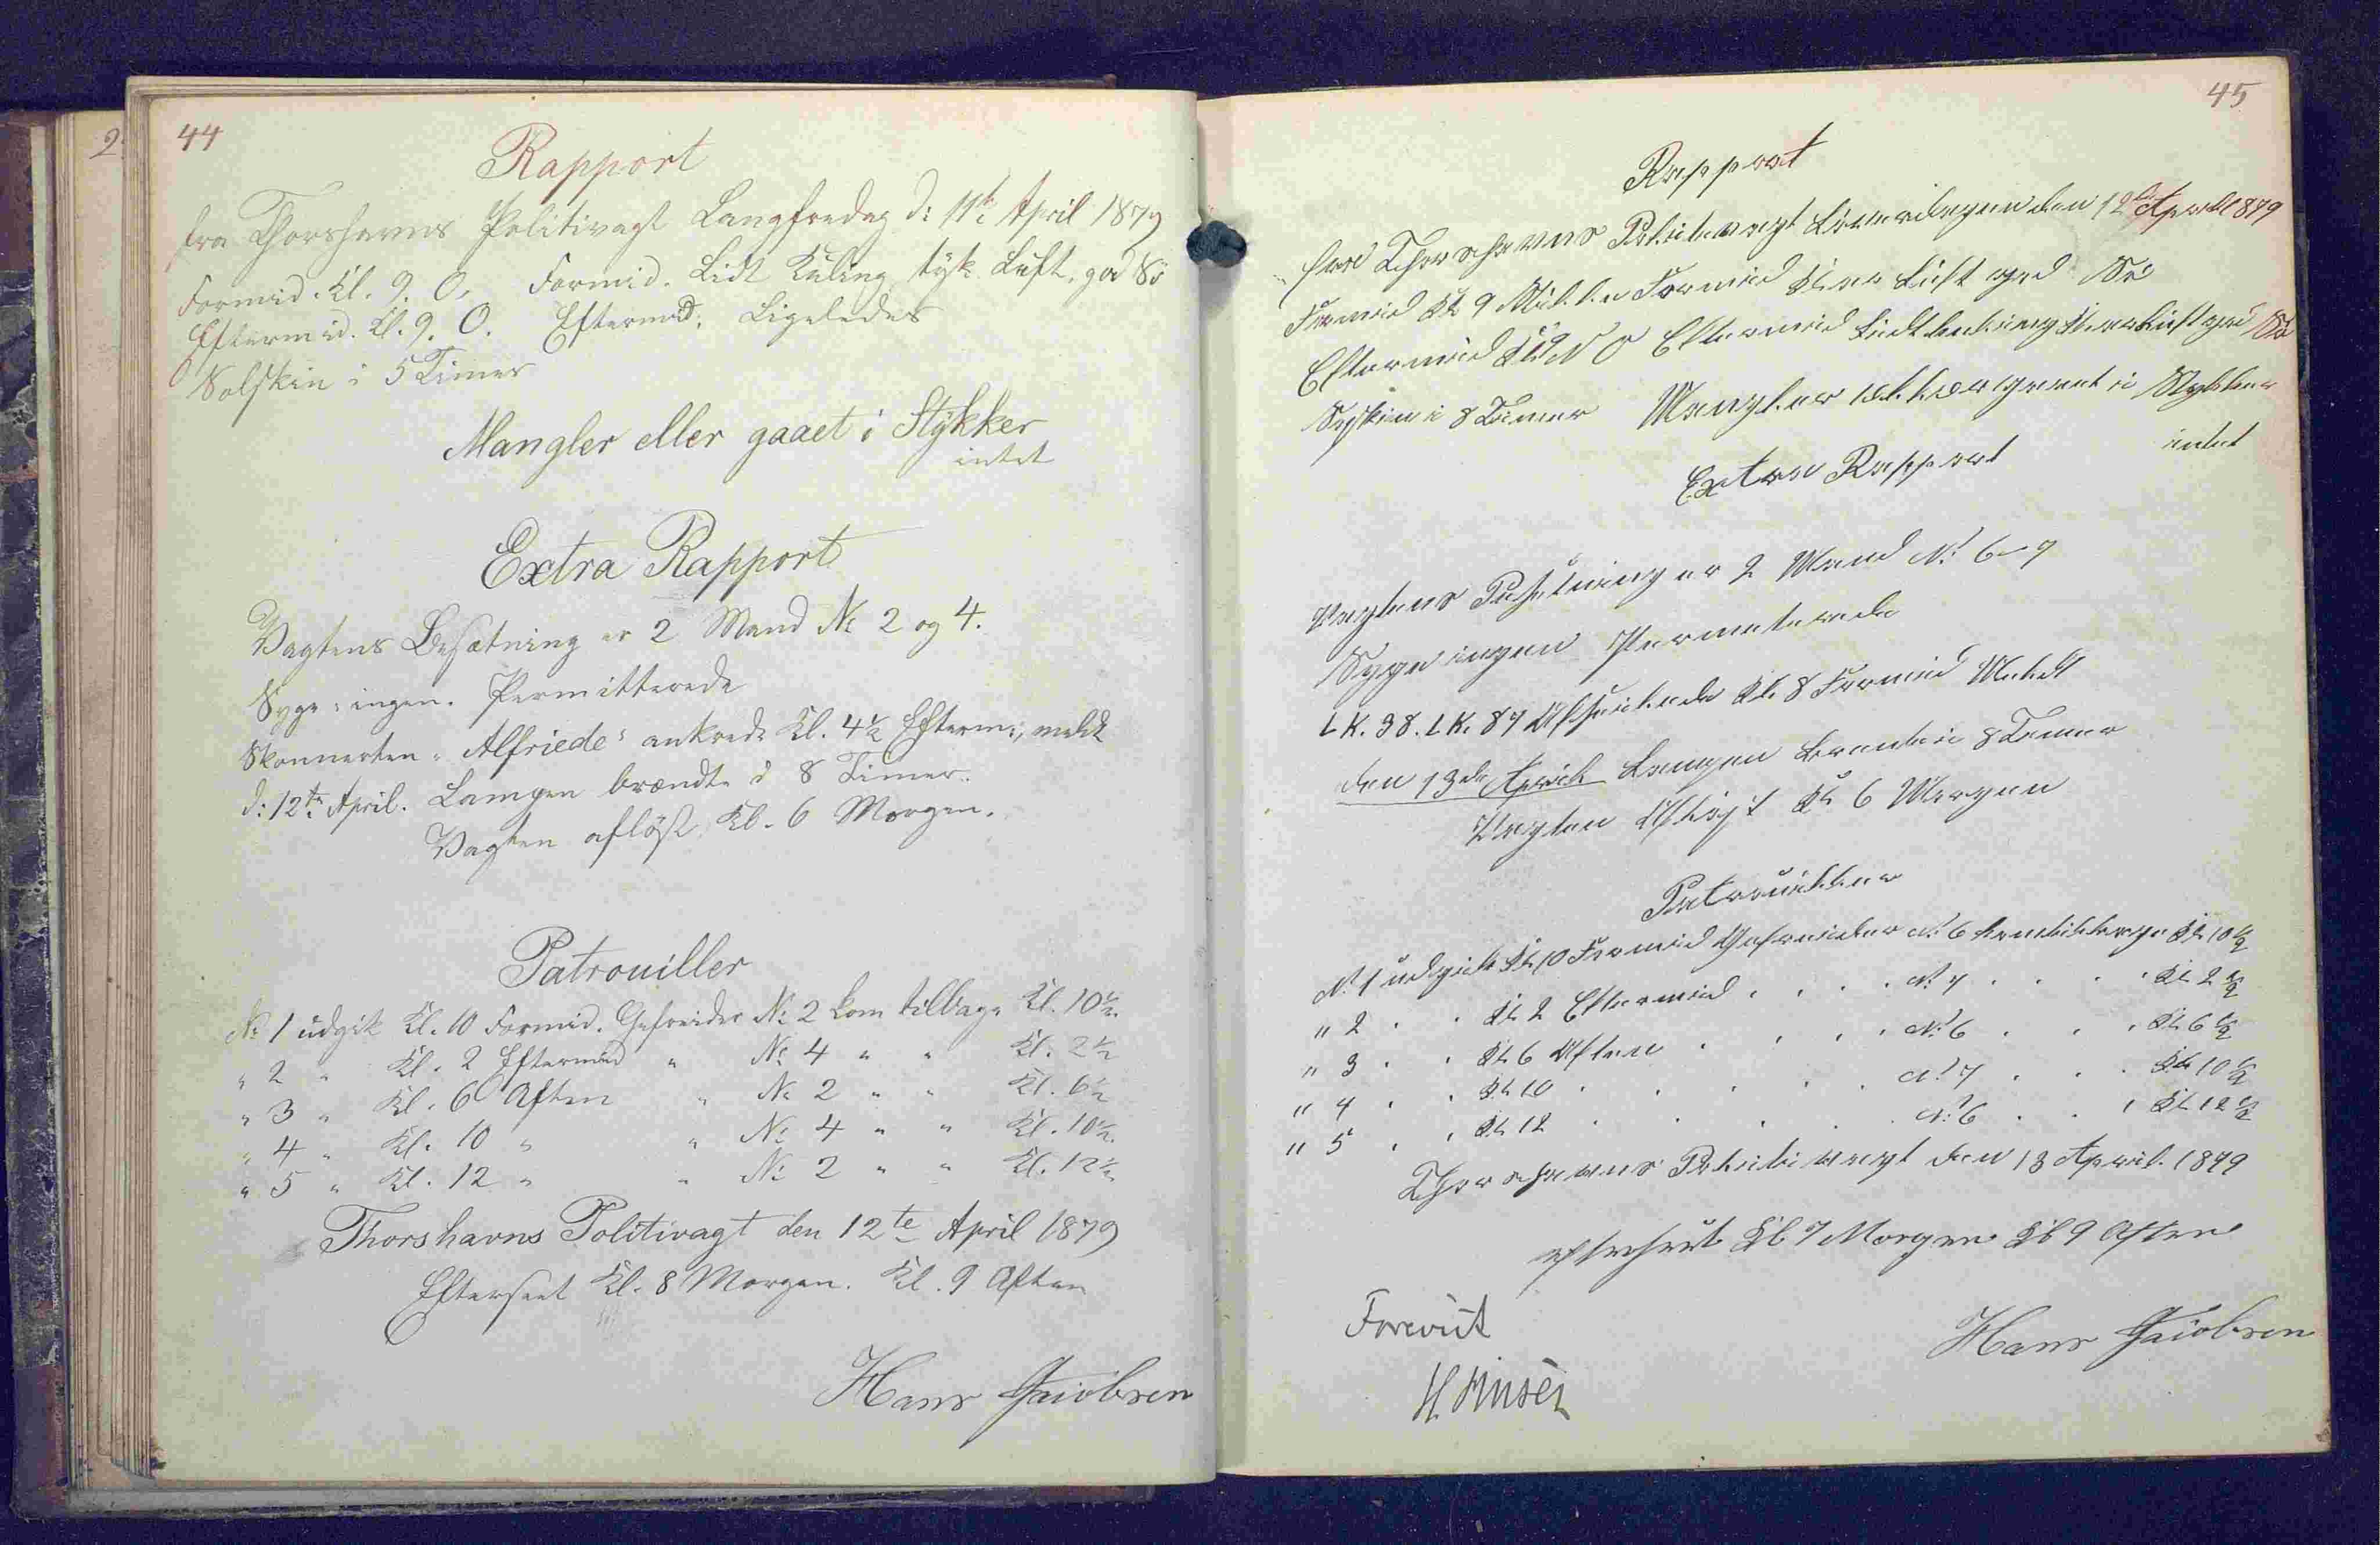 44
Rapport
fra Thorshavns Politivagt Langfredag d: 11te April 1879
Formid. Kl. 9. O. Formid. Lidt Kuling tyk Luft, god Sö
Eftermid. Kl. 9. O. Eftermid. Ligeledes
Solskin i 5 Timer
Mangler eller gaaet i Stykker
intet
Extra Rapport
Vagtens Besætning er 2 Mand No 2 og 4.
Syge: ingen. Permitterede
Skonnerten "Alfriede" ankrede Kl. 4½ Efterm:, meldt
d: 12te April. Lampen brændte i 8 Timer.
Vagten aflöst Kl. 6 Morgen.
Patrouiller
No 1 udgik Kl. 10 Formid. Gefreider No 2 kom tilbage Kl. 10½.
" 2 " Kl. 2 Eftermid " No 4 " " Kl. 2½
" 3 " Kl. 6 Aften " No 2 " " Kl. 6½
" 4 " Kl. 10 " " No 4 " " Kl. 10½.
" 5 " Kl. 12 " " No 2 " " Kl. 12½
Thorshavns Politivagt den 12te April 1879
Efterseet Kl. 8 Morgen. Kl. 9 Aften
Hans Jacobsen
45
Rapport
fra Thorshavns Politivagt Löverdagen den 12te April 1879
Formid Kl 9 Stille Formid Klar Luft god Sö
Eftermid Kl 9 N O Eftermid Lidt kuling Klar Luft god Sö
Solskin i 8 Timer Mangler eller gaaet i Stykker
intet
Extra Rapport
Vagtens Besetning er 2 Mand No 6 - 7
Syge ingen Permeterede
L K. 38. L K. 87 Afseilede Kl. 8 Formid Meldt
den 13de April Lampen brente i 8 Timer
Vagten Aflöst Kl 6 Morgen
Patrouiller
No 1 udgik Kl 10 Formid Gefreider No 6 kom tilbage Kl 10½
" 2 . . Kl 2 Eftermid . . . . No 7 . . . . Kl 2½
" 3 . . Kl 6 Aften . . . . No 6 . . . Kl 6½
" 4 . . Kl 10 . . . . . No 7 . . . Kl 10½
" 5 . . Kl 12 . . . . No 6 . . . Kl 12½
Thorshavns Politivagt den 13 April 1879
efterseet Kl 7 Morgen Kl 9 Aften
Forevist
Hans Jacobsen